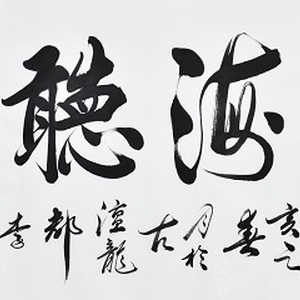 海聽
亥之
春
月於
古
澶龍
都
李